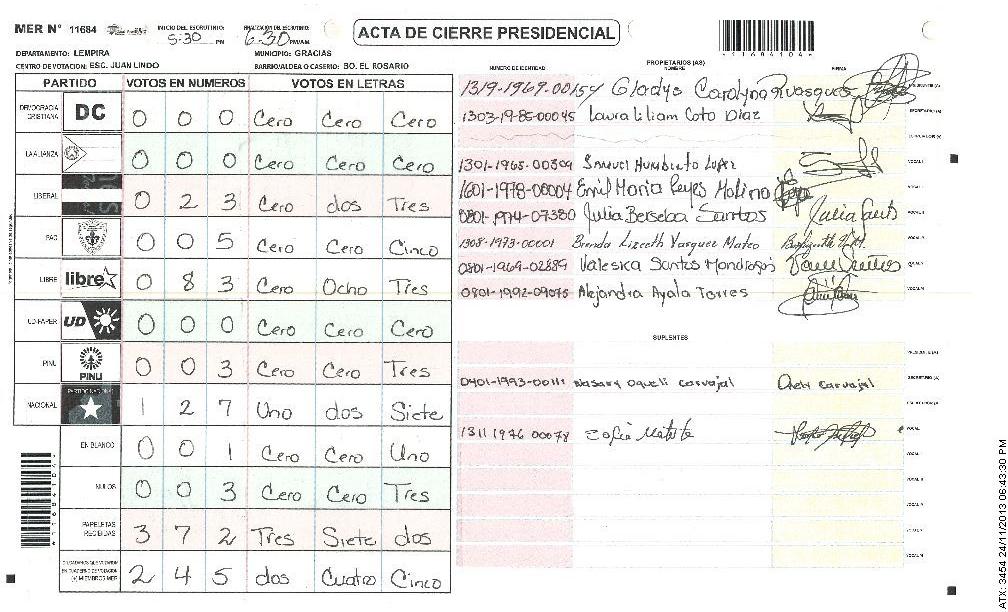 MER N° 11684 INICIO DEL ESCRUTINIO: 5:30 PM FINALIZACION DEL ESCRUTINIO: 6:30 PM/AM
ACTA DE CIERRE PRESIDENCIAL
DEPARTAMENTO: LEMPIRA MUNICIPIO: GRACIAS
CENTRO DE VOTACION: ESC. JUAN LINDO BARRIO/ALDEA O CASERIO: BO. EL ROSARIO
PARTIDO VOTOS EN NUMEROS VOTOS EN LETRAS
DEMOCRACIA CRISTIANA DC 0 0 0 Cero Cero Cero
LA ALIANZA 0 0 0 Cero Cero Cero
LIBERAL 0 2 3 Cero dos Tres
PAC 0 0 5 Cero Cero Cinco
LIBRE libre 0 8 3 Cero Ocho Tres
UD-FAPER UD 0 0 0 Cero Cero Cero
PINU PINU 0 0 3 Cero Cero Tres
NACIONAL PARTIDO NACIONAL 1 2 7 Uno dos Siete
EN BLANCO 0 0 1 Cero Cero Uno
NULOS 0 0 3 Cero Cero Tres
PAPELETAS RECIBIDAS 3 7 2 Tres Siete dos
CIUDADANOS QUE VOTARON EN CUADERNO DE VOTACION (+) MIEMBROS MER 2 4 5 dos Cuatro Cinco
*11684104*
PROPIETARIOS (AS)
NUMERO DE IDENTIDAD NOMBRE FIRMA
1319-1969-00154 Gladys Carolyna
1303-19-85-00045 Laura Liliam Coto Diaz
1301-1965-00309 Samuel Humberto Lopez
1601-1978-00004 Emil Maria Reyes Molina
0801-1974-07380 Julia Berseba Santos Julia Sants
1308-1973-00001 Brenda Lizceth Vasquez Mateo
0801-1969-02889 Valeska Santos Mondragon
0801-1992-09075 Alejandra Ayala Torres
SUPLENTES
0401-1993-00111 carvajal carvajal
1311 1976 00078 Zofia
ATX: 3454 24/11/2013 06:43:30 PM